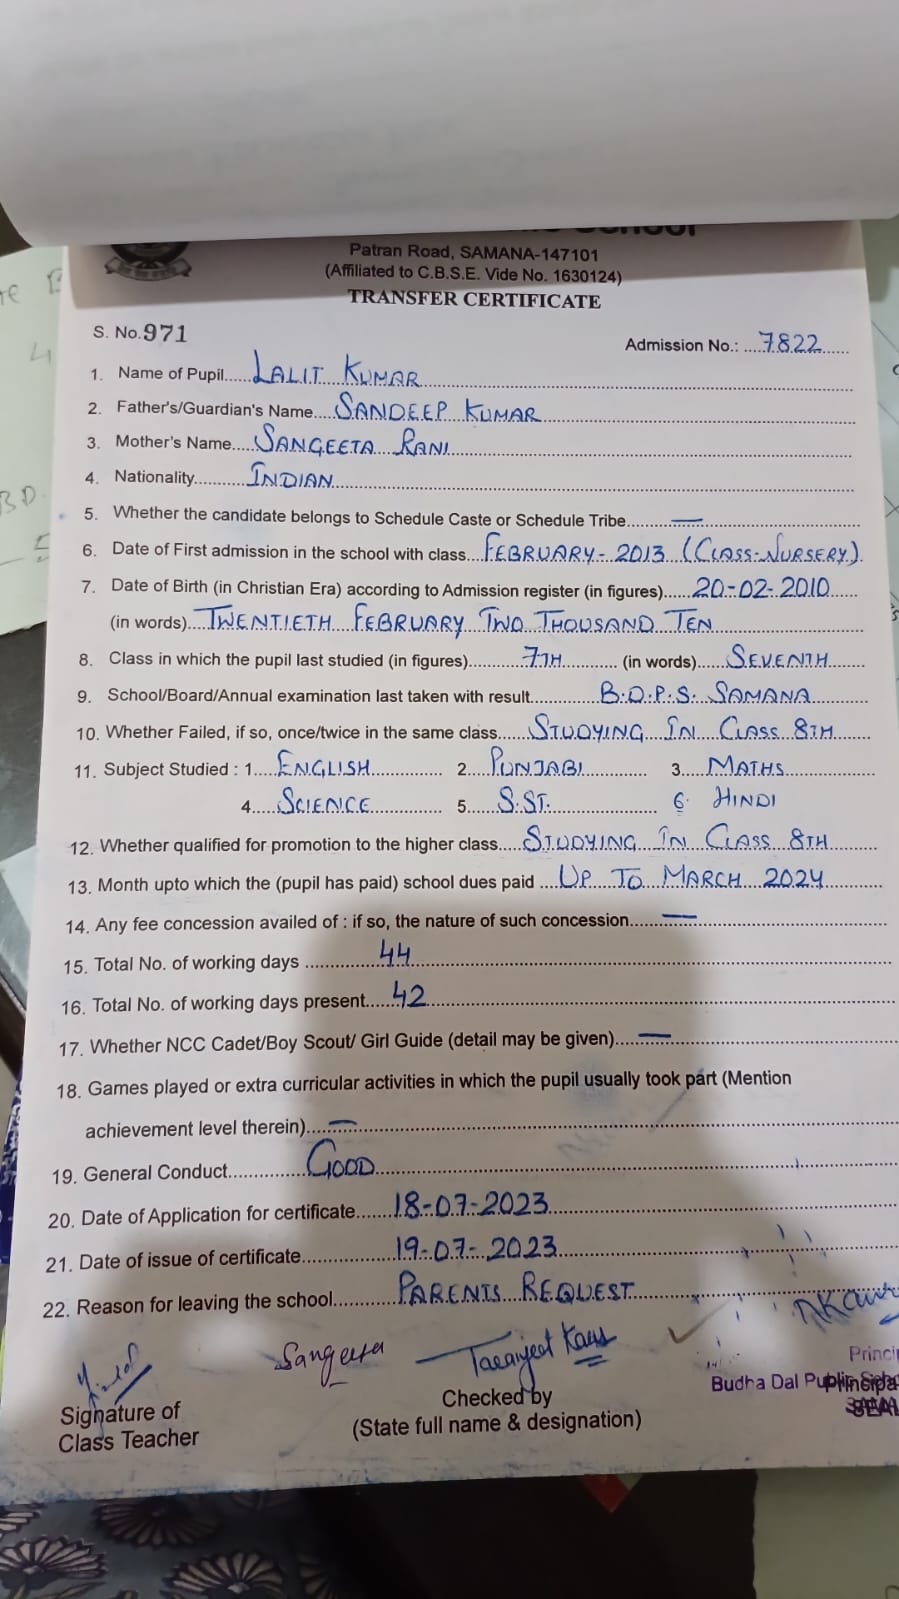 School
Patran Road, SAMANA-147101
(Affiliated to C.B.S.E. Vide No. 1630124)
TRANSFER CERTIFICATE
S. No. 971
Admission No.: ....7822......
1. Name of Pupil......LALIT KUMAR
2. Father's/Guardian's Name....SANDEEP KUMAR
3. Mother's Name....SANGEETA RANI
4. Nationality..........INDIAN
5. Whether the candidate belongs to Schedule Caste or Schedule Tribe........—
6. Date of First admission in the school with class...FEBRUARY-2013 (CLASS-NURSERY)
7. Date of Birth (in Christian Era) according to Admission register (in figures)......20-02-2010
(in words)...TWENTIETH FEBRUARY TWO THOUSAND TEN
8. Class in which the pupil last studied (in figures)..........7TH.......... (in words)......SEVENTH
9. School/Board/Annual examination last taken with result............B.D.P.S. SAMANA
10. Whether Failed, if so, once/twice in the same class......STUDYING IN CLASS 8TH
11. Subject Studied : 1....ENGLISH............ 2....PUNJABI............ 3....MATHS
4.....SCIENCE............ 5.....S.ST............ 6. HINDI
12. Whether qualified for promotion to the higher class....STUDYING IN CLASS 8TH
13. Month upto which the (pupil has paid) school dues paid ....UP TO MARCH 2024
14. Any fee concession availed of : if so, the nature of such concession......—
15. Total No. of working days ............44
16. Total No. of working days present.....42
17. Whether NCC Cadet/Boy Scout/ Girl Guide (detail may be given)....—
18. Games played or extra curricular activities in which the pupil usually took part (Mention
achievement level therein)....—
19. General Conduct............GOOD
20. Date of Application for certificate......18-07-2023
21. Date of issue of certificate..............19-07-2023
22. Reason for leaving the school..........PARENTS REQUEST
Sangeeta Taranjeet Kaur
Budha Dal Public
Signature of
Class Teacher
Checked by
(State full name & designation)